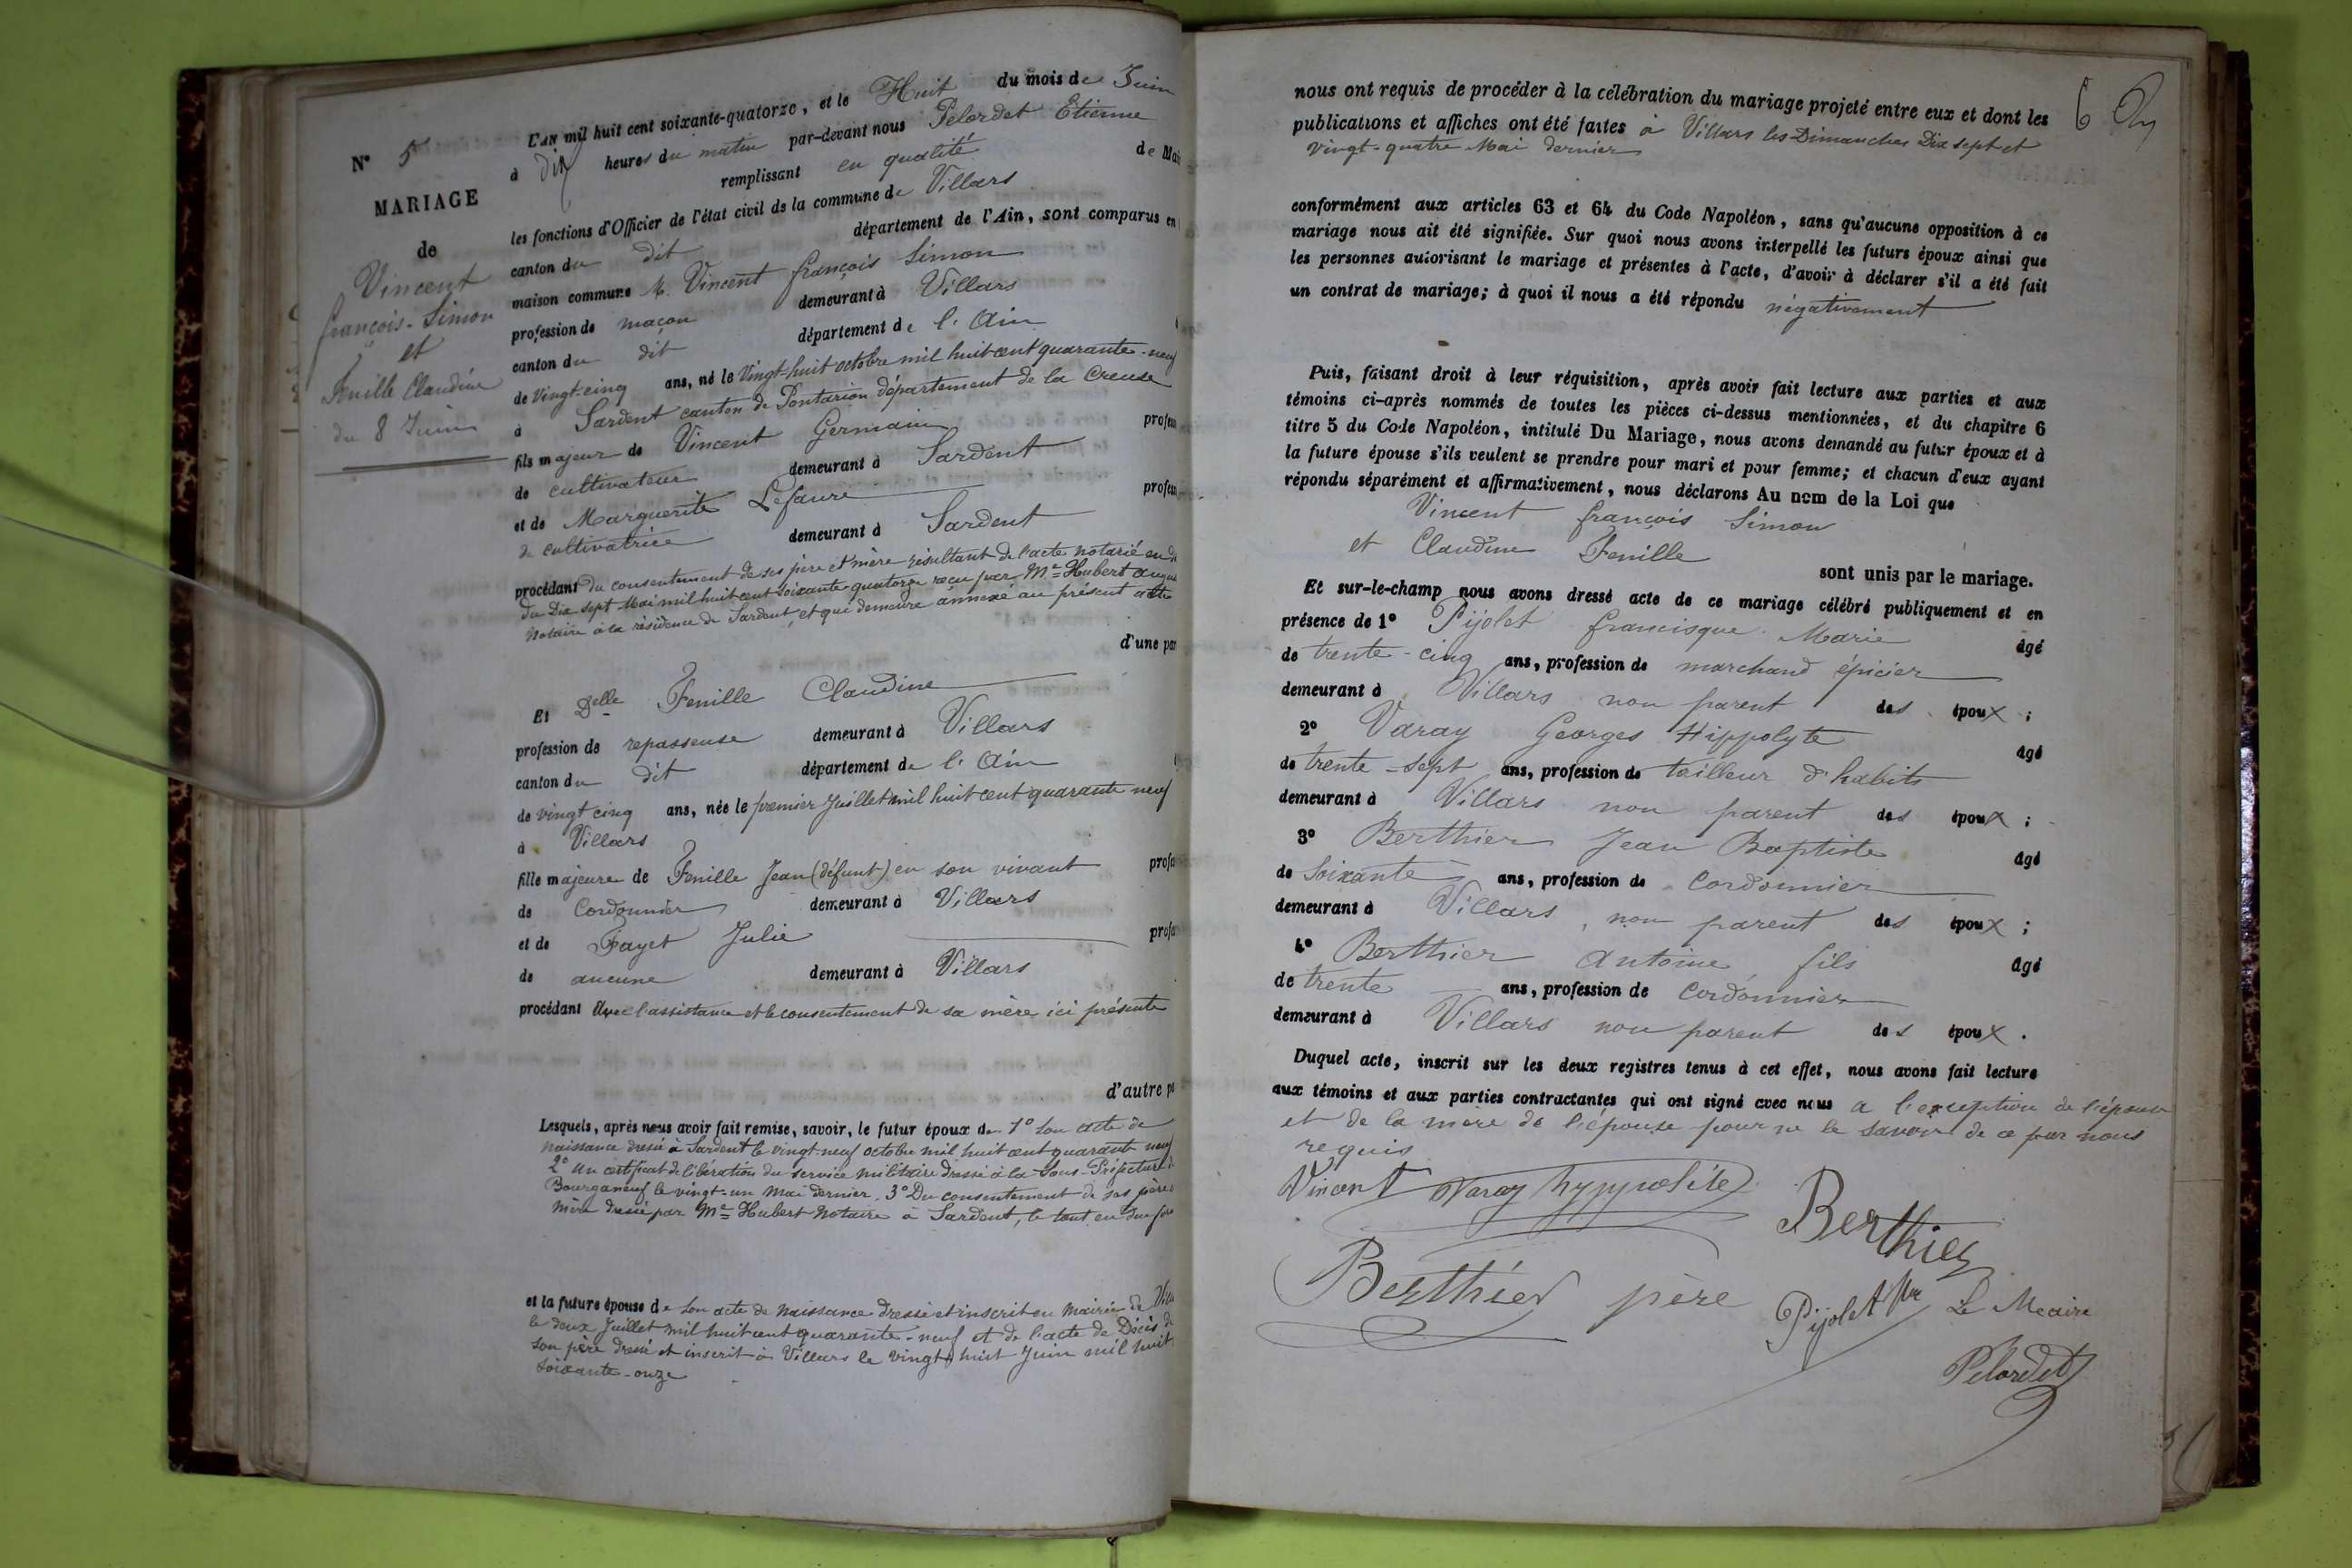 N° 5
MARIAGE
de
Vincent
françois-Simon
et
Fenille Claudine
du 8 Juin
L'AN mil huit cent soixante-quatorze, et le Huit du mois de Juin
à dix heures du matin par-devant nous Pelordet Etienne
remplissant en qualité de Mai
les fonctions d'Officier de l'état civil de la commune de Villars
canton du dit département de l'Ain, sont comparus en
maison commune M. Vincent françois Simon
profession de maçon demeurant à Villars
canton du dit département de l'Ain
de Vingt-cinq ans, né le Vingt huit octobre mil huit cent quarante-neuf
à Sardent canton de Pontarion département de la Creuse
fils majeur de Vincent Germain profess
de cultivateur demeurant à Sardent
et de Marguerite Lefaure profess
de cultivatrice demeurant à Sardent
procédant du consentement de ses père et mère résultant de l'acte notarié en d
du Dix sept Mai mil huit cent soixante quatorze reçu par Me Hubert
Notaire à la résidence de Sardent, et qui demeure annexé au présent acte
d'une par
Et Delle Fenille Claudine
profession de repasseuse demeurant à Villars
canton du dit département de l'Ain
de vingt cinq ans, née le premier Juillet mil huit cent quarante neuf
à Villars
fille majeure de Fenille Jean (défunt) en son vivant profe
de Cordonnier demeurant à Villars
et de Fayet Julie profe
de aucune demeurant à Villars
procédant Avec l'assistance et le consentement de sa mère ici présente
d'autre pa
Lesquels, après nous avoir fait remise, savoir, le futur époux de 1° Son acte de
naissance dressé à Sardent le vingt-neuf octobre mil huit cent quarante neuf
2° Un certificat de libération du service militaire dressé à la Sous-Préfecture d
Bourganeuf le vingt-un Mai dernier. 3° Du consentement de ses père
mère dressé par Me Hubert Notaire à Sardent, le tout en due for
et la future épouse de Son acte de Naissance dressé et inscrit en Mairie de Villa
le deux Juillet mil huit cent quarante-neuf et de l'acte de Décès de
son père dressé et inscrit à Villars le vingt huit Juin mil huit
soixante-onze
6
nous ont requis de procéder à la célébration du mariage projeté entre eux et dont les
publications et affiches ont été faites à Villars les Dimanches Dix sept et
Vingt-quatre Mai dernier
conformément aux articles 63 et 64 du Code Napoléon, sans qu'aucune opposition à ce
mariage nous ait été signifiée. Sur quoi nous avons interpellé les futurs époux ainsi que
les personnes autorisant le mariage et présentes à l'acte, d'avoir à déclarer s'il a été fait
un contrat de mariage; à quoi il nous a été répondu négativement
Puis, faisant droit à leur réquisition, après avoir fait lecture aux parties et aux
témoins ci-après nommés de toutes les pièces ci-dessus mentionnées, et du chapitre 6
titre 5 du Code Napoléon, intitulé Du Mariage, nous avons demandé au futur époux et à
la future épouse s'ils veulent se prendre pour mari et pour femme; et chacun d'eux ayant
répondu séparément et affirmativement, nous déclarons Au nom de la Loi que
Vincent françois Simon
et Claudine Fenille
sont unis par le mariage.
Et sur-le-champ nous avons dressé acte de ce mariage célébré publiquement et en
présence de 1° Pijolet francisque Marie âgé
de trente-cinq ans, profession de marchand épicier
demeurant à Villars non parent des époux ;
2° Varay Georges Hippolyte âgé
de trente-sept ans, profession de tailleur d'habits
demeurant à Villars non parent des époux ;
3° Berthier Jean Baptiste âgé
de Soixante ans, profession de Cordonnier
demeurant à Villars, non parent des époux ;
4° Berthier Antoine fils âgé
de trente ans, profession de Cordonnier
demeurant à Villars non parent des époux.
Duquel acte, inscrit sur les deux registres tenus à cet effet, nous avons fait lecture
aux témoins et aux parties contractantes qui ont signé avec nous a l'exception de l'épouse
et de la mère de l'épouse pour ne le savoir de ce par nous
requis
Vincent Varay hyppolite
Berthier
Berthier père Pijolet Le Maire
Pelordet